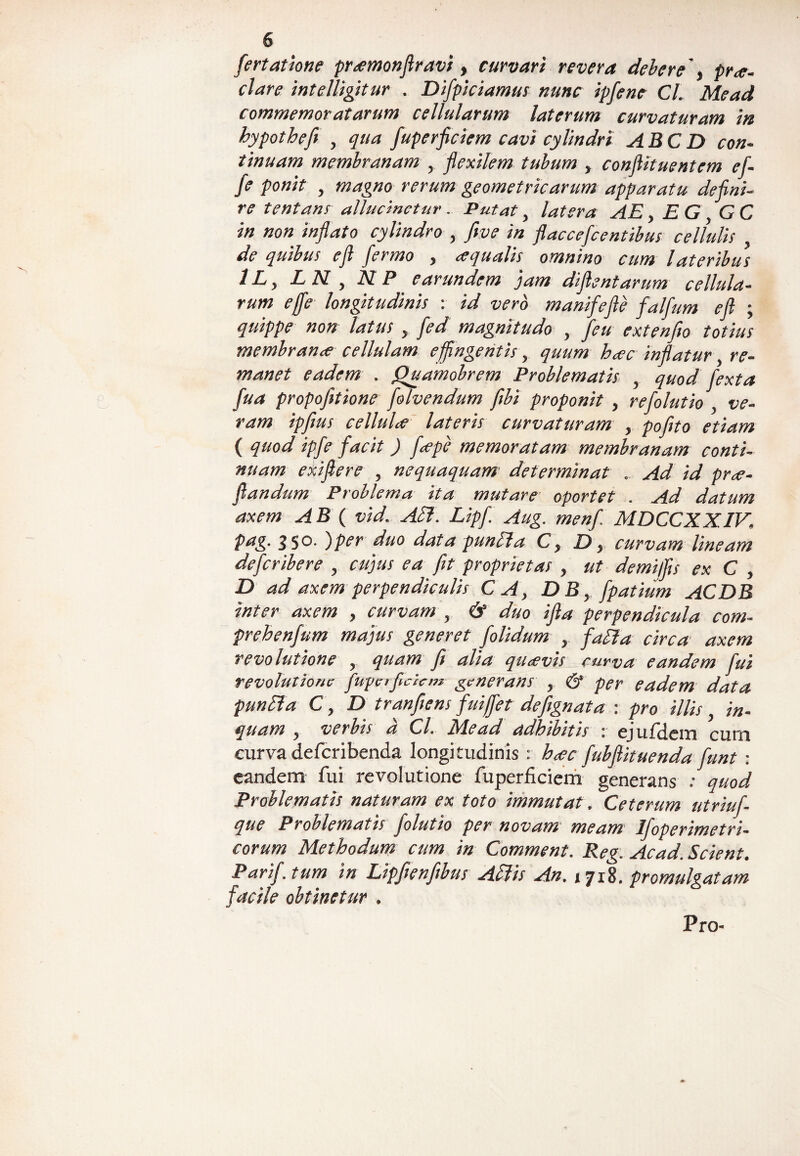 6
ſertatione præmonſtravi, curvari revera debere', præ-
clare intelligitur . Diſpiciamus nunc ipſene Cl. Mead
commemoratarum cellularum laterum curvaturam in
hypotheſi , qua ſuperficiem cavi cylindri A B C D con-
tinuam membranam , flexilem tubum , conſtituentem eſ-
ſe ponit , magno rerum geometricarum apparatu defini-
re tentans allucinetur. Putat, latera AE, E G, G C
in non inflato cylindro , ſive in flacceſcentibus cellulis ,
de quibus eſt ſermo , æqualis omnino cum lateribus
I L, L N , N P earundem jam diſtentarum cellula-
rum eſſe longitudinis : id verò manifeſtè falſum eſt ;
quippe non latus , ſed magnitudo , ſeu extenſio totius
membranæ cellulam effingentis, quum hæc inflatur, re-
manet eadem . Quamobrem Problematis , quod ſexta
ſua propoſitione ſolvendum ſibi proponit , reſolutio , ve-
ram ipſius cellulæ lateris curvaturam , poſito etiam
( quod ipſe facit ) ſæpè memoratam membranam conti-
nuam exiſtere , nequaquam determinat . Ad id præ-
ſtandum Problema ita mutare oportet . Ad datum
axem A B ( vid. Act. Lipſ. Aug. menſ. MDCCXXIV.
pag. 350. ) per duo data puncta C, D, curvam lineam
deſcribere , cujus ea ſit proprietas , ut demiſſis ex C ,
D ad axem perpendiculis C A, D B, ſpatium ACDB
inter axem , curvam , & duo iſta perpendicula com-
prehenſum majus generet ſolidum , facta circa axem
revolutione , quam ſi alia quævis curva eandem ſui
revolutione ſuperficiem generans , & per eadem data
puncta C, D tranſiens fuiſſet deſignata : pro illis, in-
quam , verbis à Cl. Mead adhibitis : ejuſdem cum
curva deſcribenda longitudinis : hæc ſubſtituenda ſunt :
eandem ſui revolutione ſuperficiem generans : quod
Problematis naturam ex toto immutat. Ceterum utriuſ-
que Problematis ſolutio per novam meam Iſoperimetri-
corum Methodum cum in Comment. Reg. Acad. Scient.
Pariſ. tum in Lipſienſibus Actis An. 1718. promulgatam
facile obtinetur .
Pro-